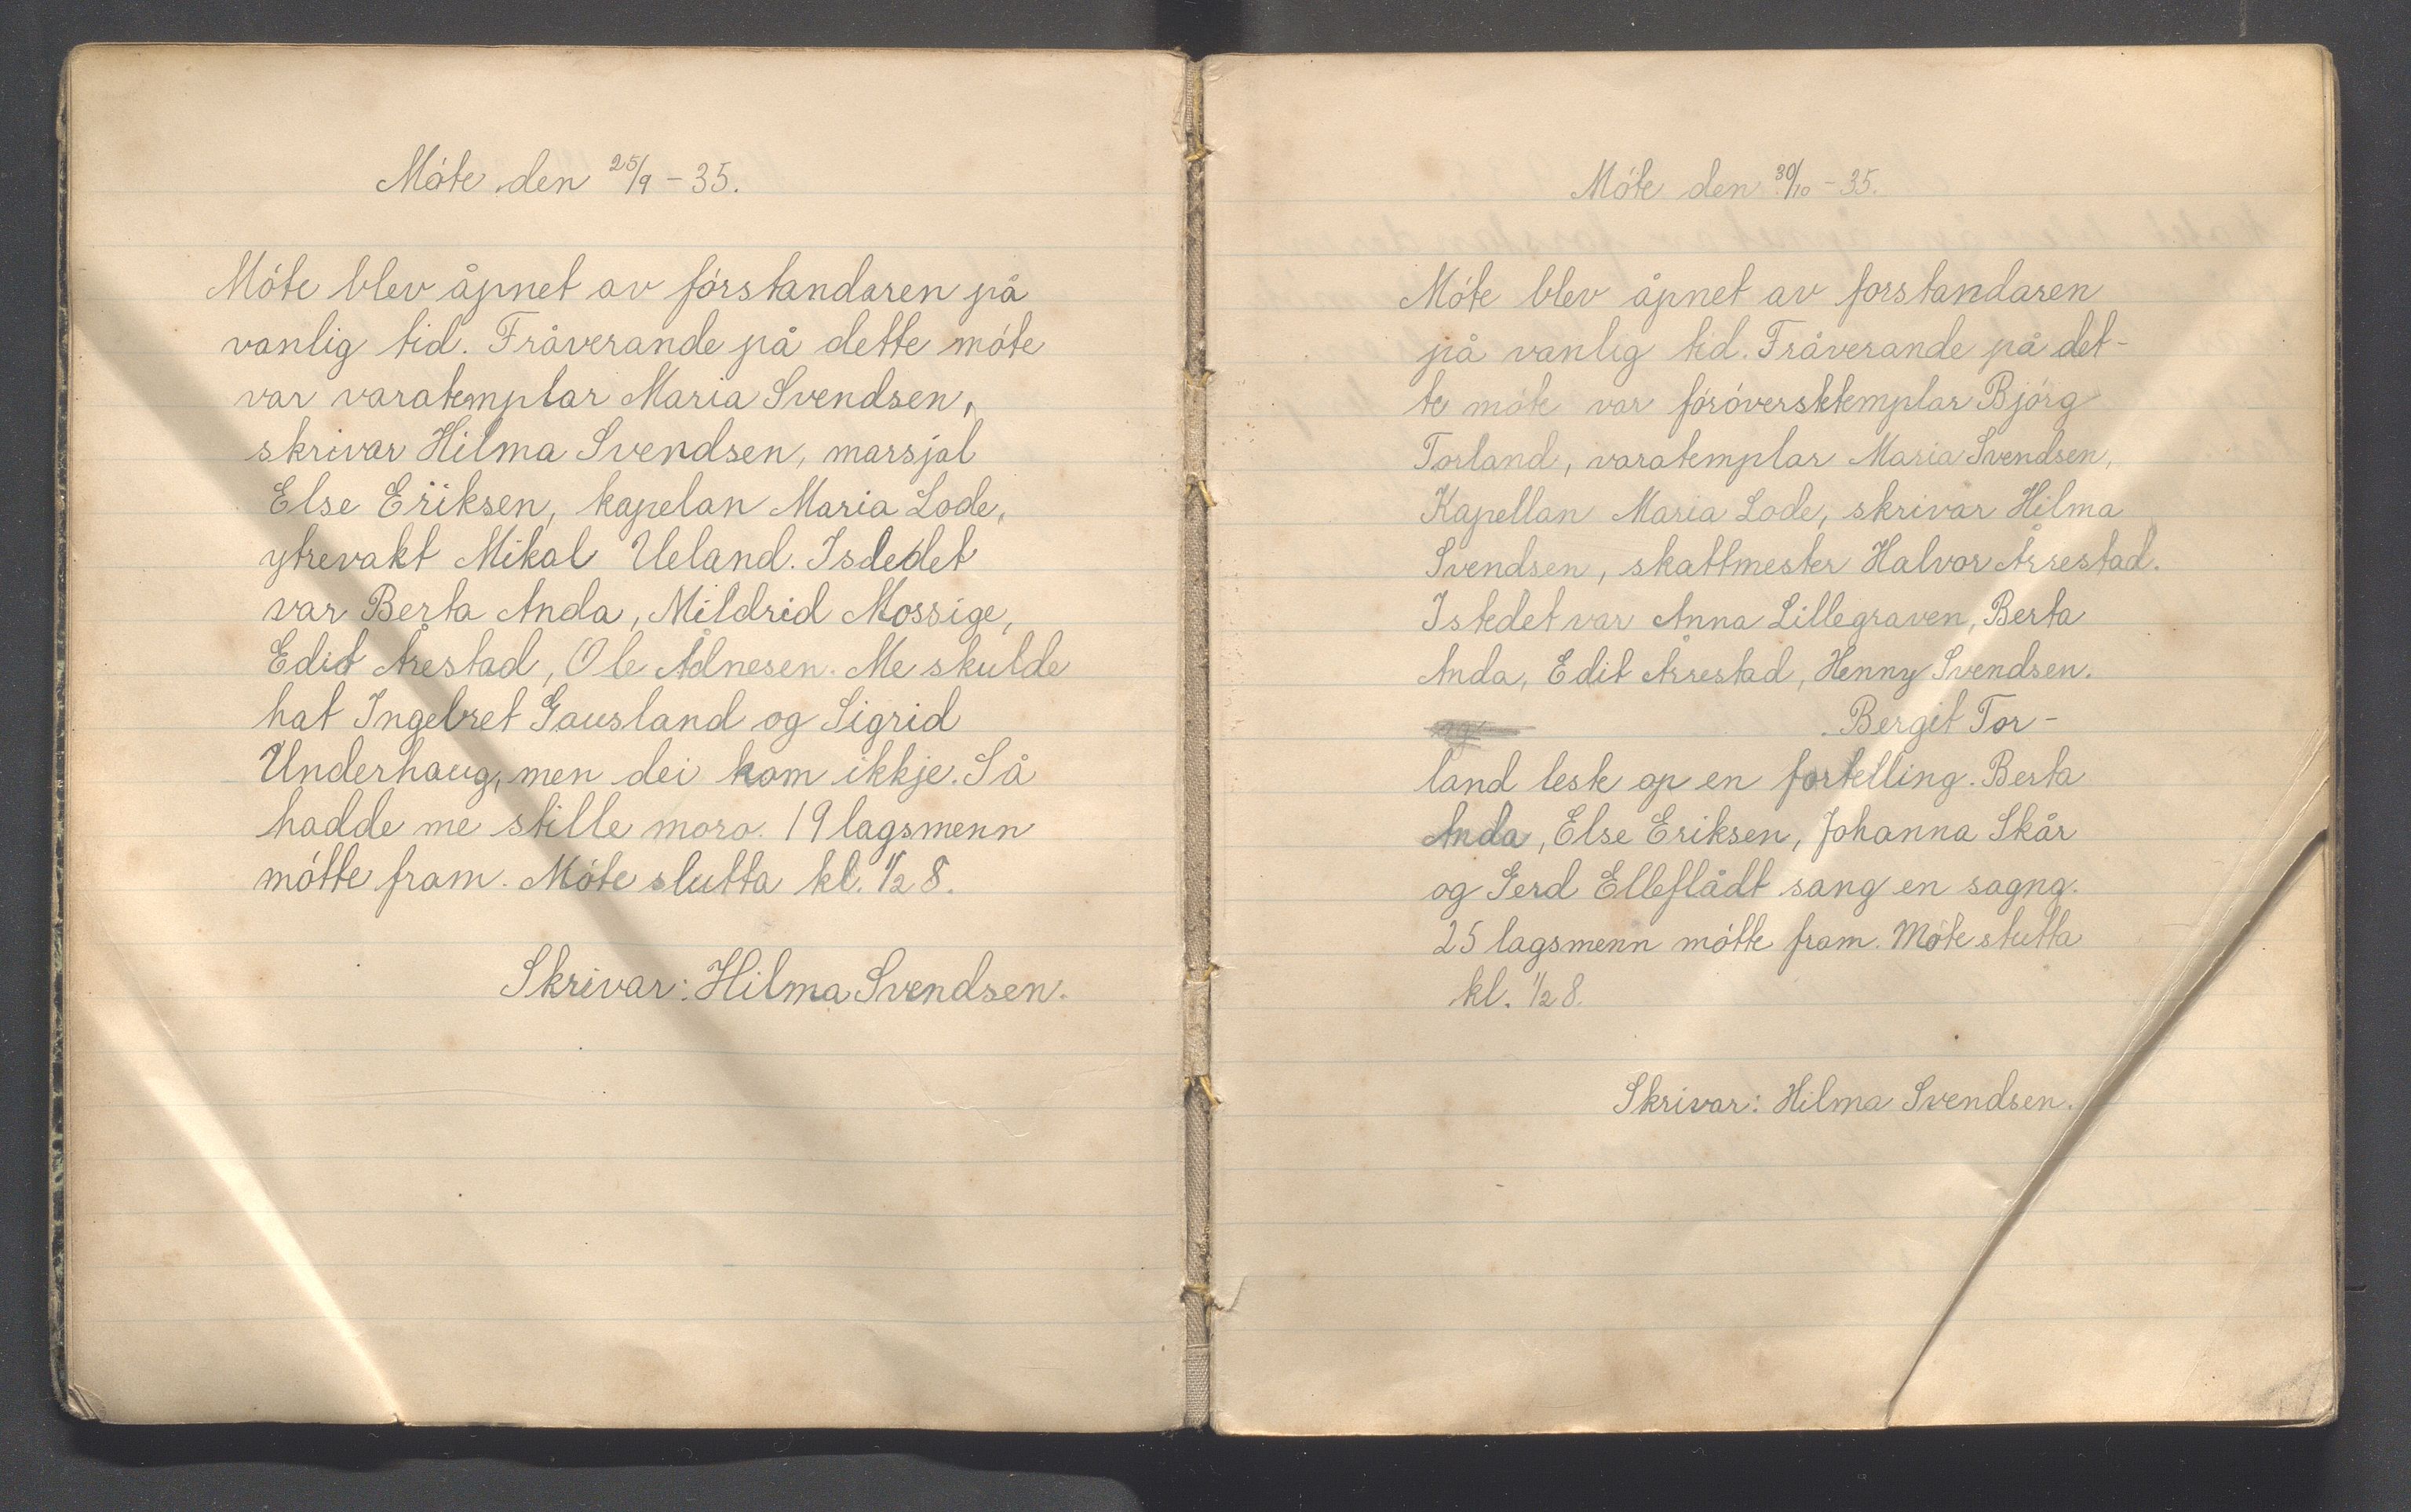 Móte den 25/9 - 35.
Móte blev åpnet av fórstandaren på
vanlig tid. Fråverande på dette móte
var varatemplar Maria Svendsen,
skrivar Hilma Svendsen, marsjal
Else Eriksen, kapelan Maria Lode,
ytrevakt Mikal Ueland. Isdedet
var Berta Anda, Mildrid Mossige,
Edit Årestad, Ole Ådnesen. Me skulde
hat Ingebret Gausland og Sigrid
Underhaug, men dei kom ikkje. Så
hadde me stille moro. 19 lagsmenn
mótte fram. Móte slutta kl. 1/2 8.
Skrivar: Hilma Svendsen.
Móte den 30/10 - 35.
Móte blev åpnet av forstandaren
på vanlig tid. Fråverande på det-
te móte var fóróversktemplar Bjórg
Torland, varatemplar Maria Svendsen,
Kapellan Maria Lode, skrivar Hilma
Svendsen, skattmester Halvor Årrestad.
Istedet var Anna Lillegraven, Berta
Anda, Edit Årrestad, Henny Svendsen.
Bergit Tor-
land leste op en fortelling. Berta
Anda, Else Eriksen, Johanna Skår
og Gerd Elleflådt sang en sagng.
25 lagsmenn mótte fram. Móte slutta
kl. 1/2 8.
Skrivar: Hilma Svendsen.